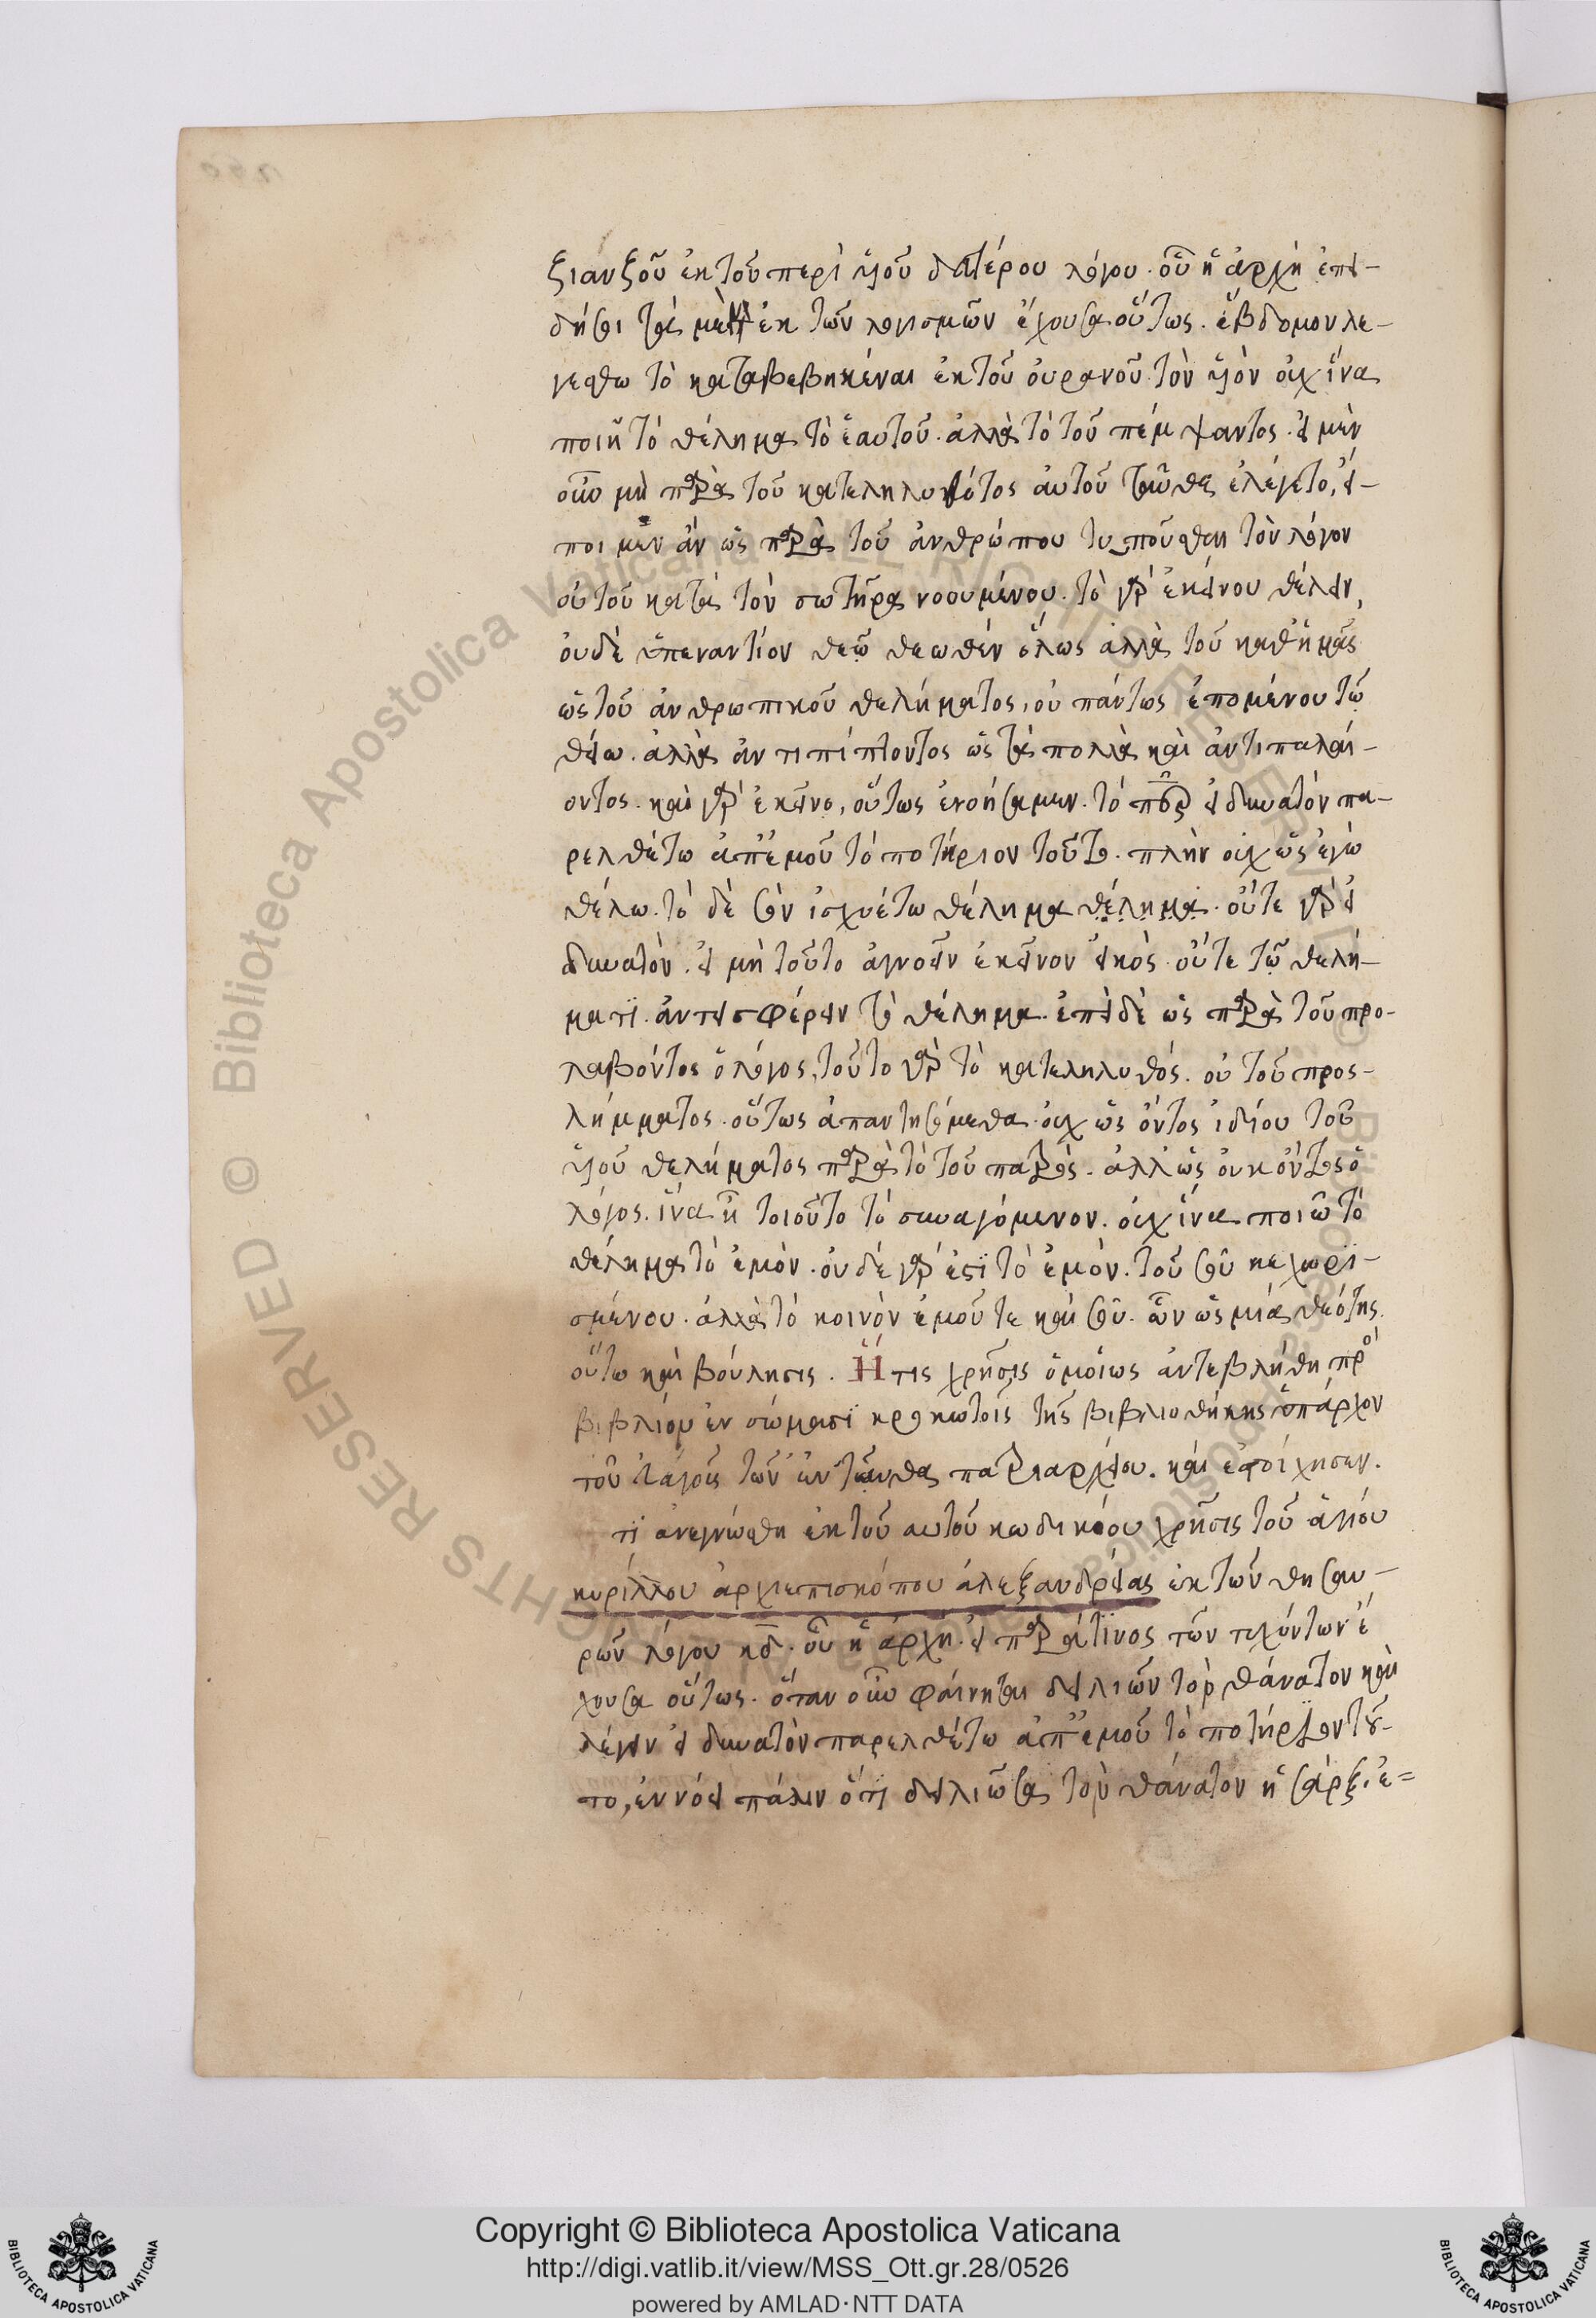 ξιανξοῦ ἐκ τοῦ περὶ ὑιοῦ δευτέρου λόγου. οὗ ἡ ἀρχὴ ἐπει-
δή σοι τὰ μὲν ἐκ τῶν λογισμῶν ἔχουσα οὕτως. ἕβδομον λε-
γέσθω τὸ καταβεβηκέναι ἐκ τοῦ ὀυρανοῦ τὸν ὑιὸν οὐχ ἵνα
ποιῇ τὸ θέλημα τὸ ἑαυτοῦ. ἀλλὰ τὸ τοῦ πέμψαντος. εἰ μὲν
οὖν μὴ παρὰ τοῦ κατεληλυθότος ἀυτοῦ ταῦθα ἐλέγετο, εἴ-
ποιμεν ἂν ὡς παρὰ τοῦ ἀνθρώπου τυποῦσθαι τὸν λόγον
οὐ τοῦ κατὰ τὸν σωτῆρα νοουμένου. τὸ γὰρ ἐκείνου θέλειν,
ὀυδὲ ὑπεναντίον θεῷ θεωθὲν ὅλως ἀλλὰ τοῦ καθ᾽ ἡμᾶς
ὡς τοῦ ἀνθρωπικοῦ θελήματος, οὐ πάντως ἑπομένου τῷ
θείω. ἀλλὰ ἀντιπίπτοντος ὡς τὰ πολλὰ καὶ ἀντιπαλαί-
οντος. καὶ γὰρ ἐκεῖνο, οὕτως ἐνοήσαμεν. τὸ περ εἰ δυνατὸν πα-
ρελθέτω ἀπ᾽ ἐμοῦ τὸ ποτήριον τοῦτο. πλὴν οὐχ ὡς ἐγὼ
θέλω. τὸ δὲ σὸν ἰσχυέτω θέλημα θέλημα. οὔτε γὰρ εἰ
δυνατὸν. εἰ μὴ τοῦτο ἀγνοεῖν ἐκεῖνον εἰκὸς. οὔτε τῷ θελή-
ματι. ἀντεισφέρειν τὸ θέλημα. ἐπεὶ δὲ ὡς παρὰ τοῦ προ-
λαβόντος ὁ λόγος, τοῦτο γὰρ τὸ κατεληλυθός. οὐ τοῦ προς-
λήμματος. οὕτως ἀπαντησόμεθα. οὐχ ὡς ὄντος ἰδίου τοῦ
ὑιοῦ θελήματος παρὰ τὸ τοῦ πατρὸς. ἀλλ᾽ ὡς ὀυκ ὄντος ὁ
λόγος. ἵνα ἦ τοιοῦτο τὸ συναγόμενον. οὐχ ἵνα ποιῶ τὸ
θέλημα τὸ ἐμὸν. ὀυδὲ γὰρ ἐστὶ τὸ ἐμὸν. τοῦ σοῦ κεχωρι-
σμένου. ἀλλὰ τὸ κοινὸν ἐμοῦ τε καὶ σοῦ. ὧν ὡς μία θεότης.
οὕτω καὶ βούλησις. Ἥ τις χρῆσις ὁμοίως ἀντεβλήθη πρὸ
βιβλίον ἐν σώμασι κροκωτοῖς τῆς βιβλιοθήκης ὑπάρχον
τοῦ ἐυαγοῦς τῶν ἐνταυθα πατριαρχείου. καὶ ἐστοίχησεν.
τι ἀνεγνώσθη ἐκ τοῦ αυτοῦ κωδικίου χρῆσις τοῦ ἁγίου
κυρίλλου ἀρχιεπισκόπου ἀλεξανδρείας ἐκ τῶν θησαυ-
ρῶν λόγου κδ. οὗ ἡ ἀρχὴ. εἰ παρά τινος τῶν τυχόντων ἔ
χουσα οὕτως. ὅταν οὖν φαίνηται δειλιῶν τὸν θάνατον καὶ
λέγων εἰ δυνατὸν παρελθέτω ἀπ᾽ ἐμοῦ τὸ ποτήριον τοῦ-
το, ἐννόει πάλιν ὅτι δειλιῶσα τὸν θάνατον ἡ σάρξ. ἐ=
Copyright © Biblioteca Apostolica Vaticana
http://digi.vatlib.it/view/MSS_Ott.gr.28/0526
powered by AMLAD·NTT DATA